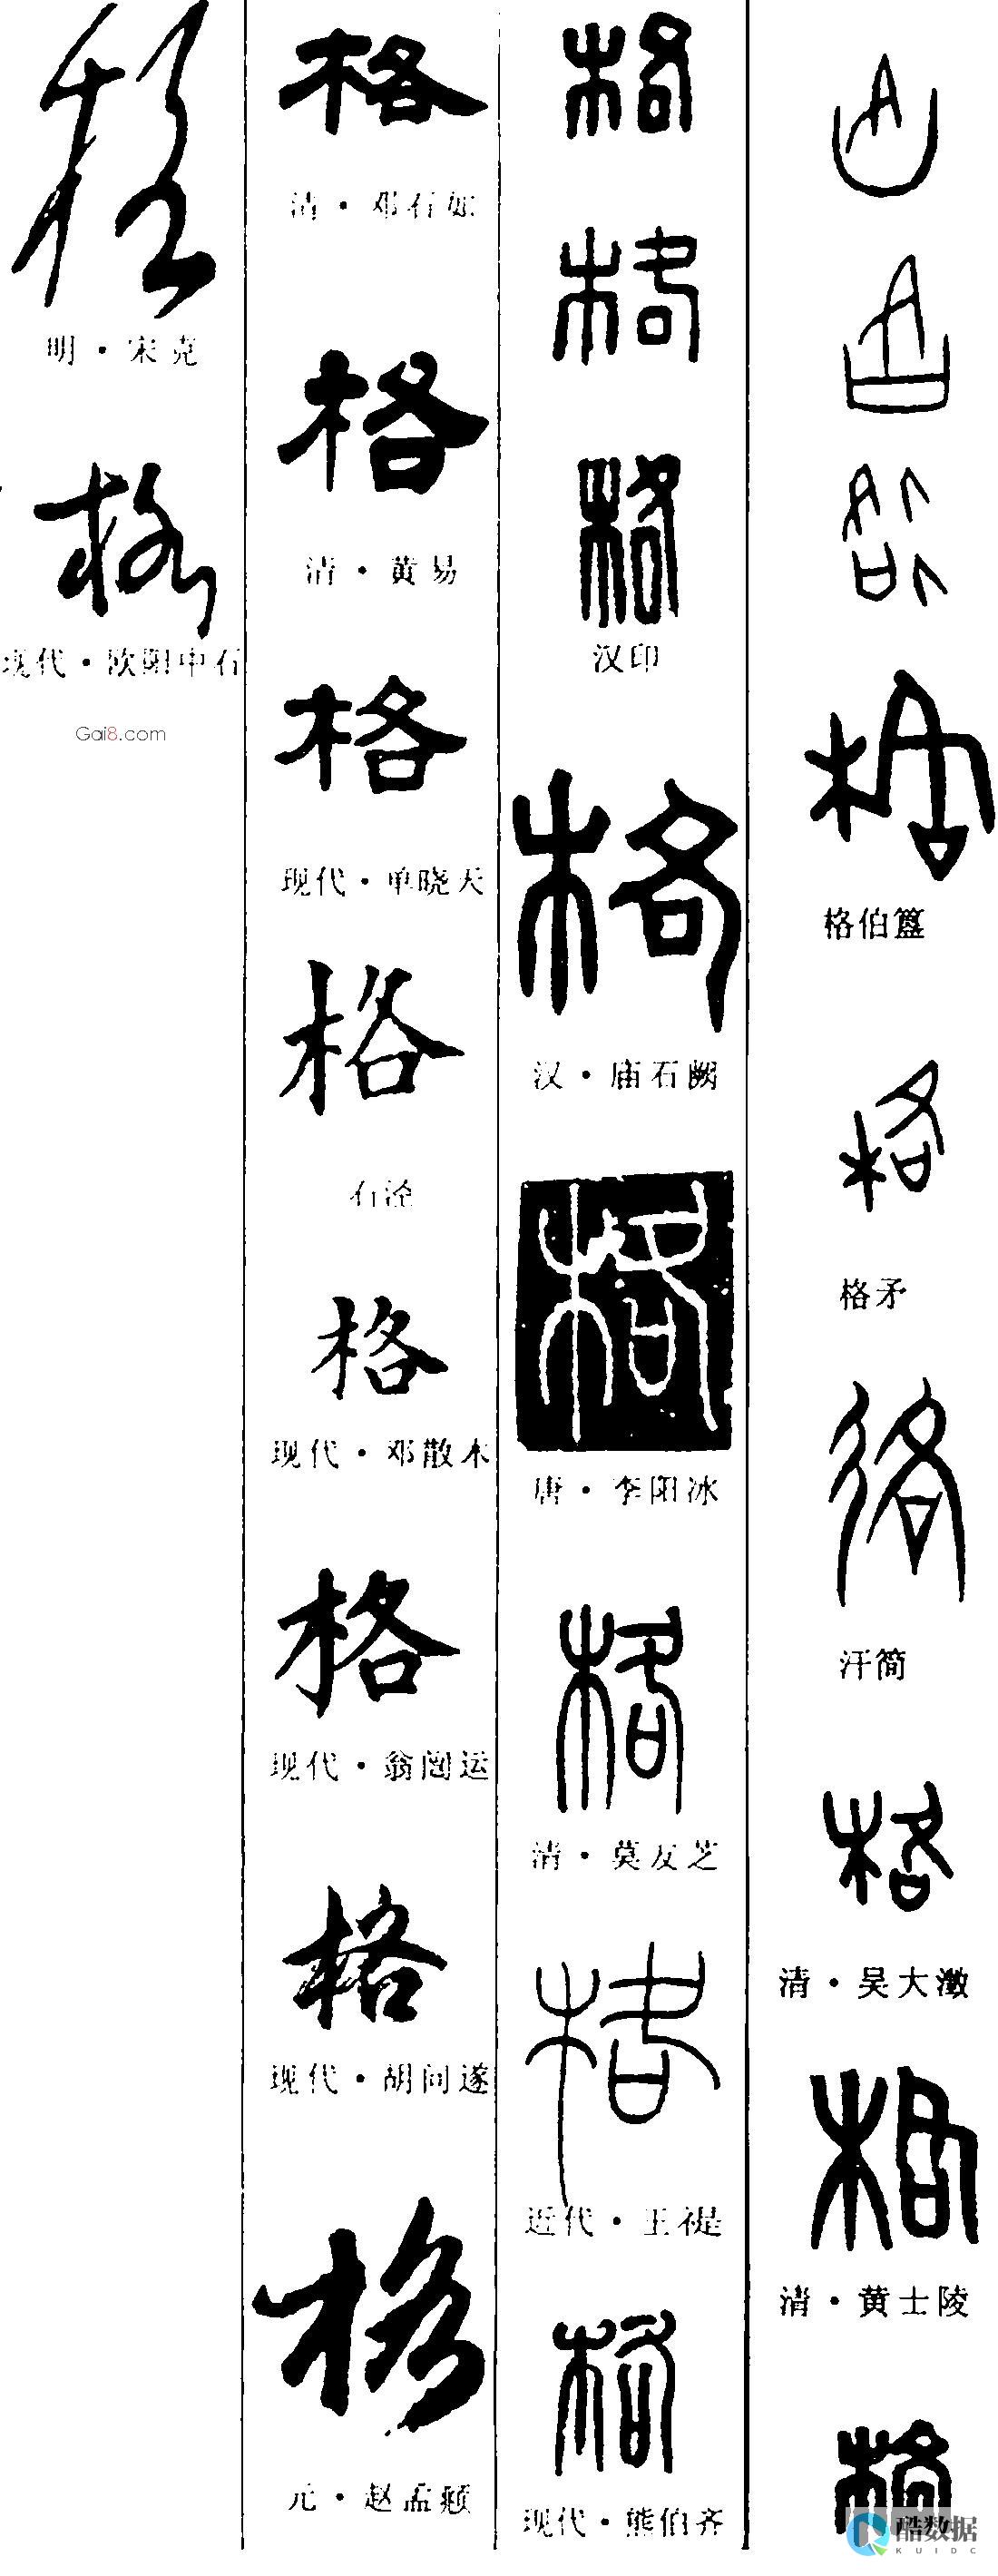 格伯簋
格
格矛
汗简
格
清·吴大澂
格
清·黄士陵
格
格
格
格
汉印
格
汉·庙石阙
格
唐·李阳冰
格
清·莫友芝
格
近代·王禔
格
现代·熊伯齐
格
清·邓石如
格
清·黄易
格
现代·单晓天
格
石淦
格
现代·邓散木
格
现代·翁闿运
格
现代·胡问遂
格
元·赵孟頫
格
明·宋克
格
现代·欧阳中石
Gai8.com
酷数据
KUIDC